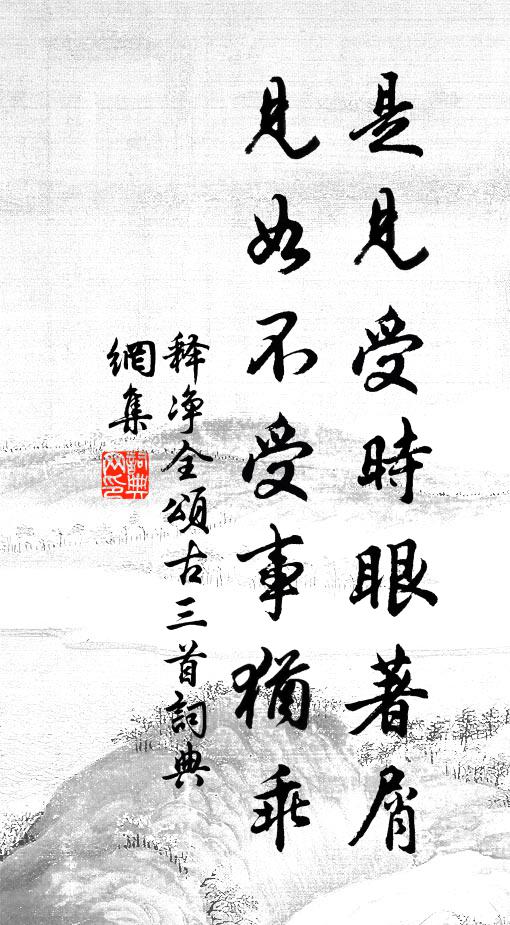 是見受時眼著屑
見如不受事猶乖
释净全頌古三首詞典
網集
詞典網印